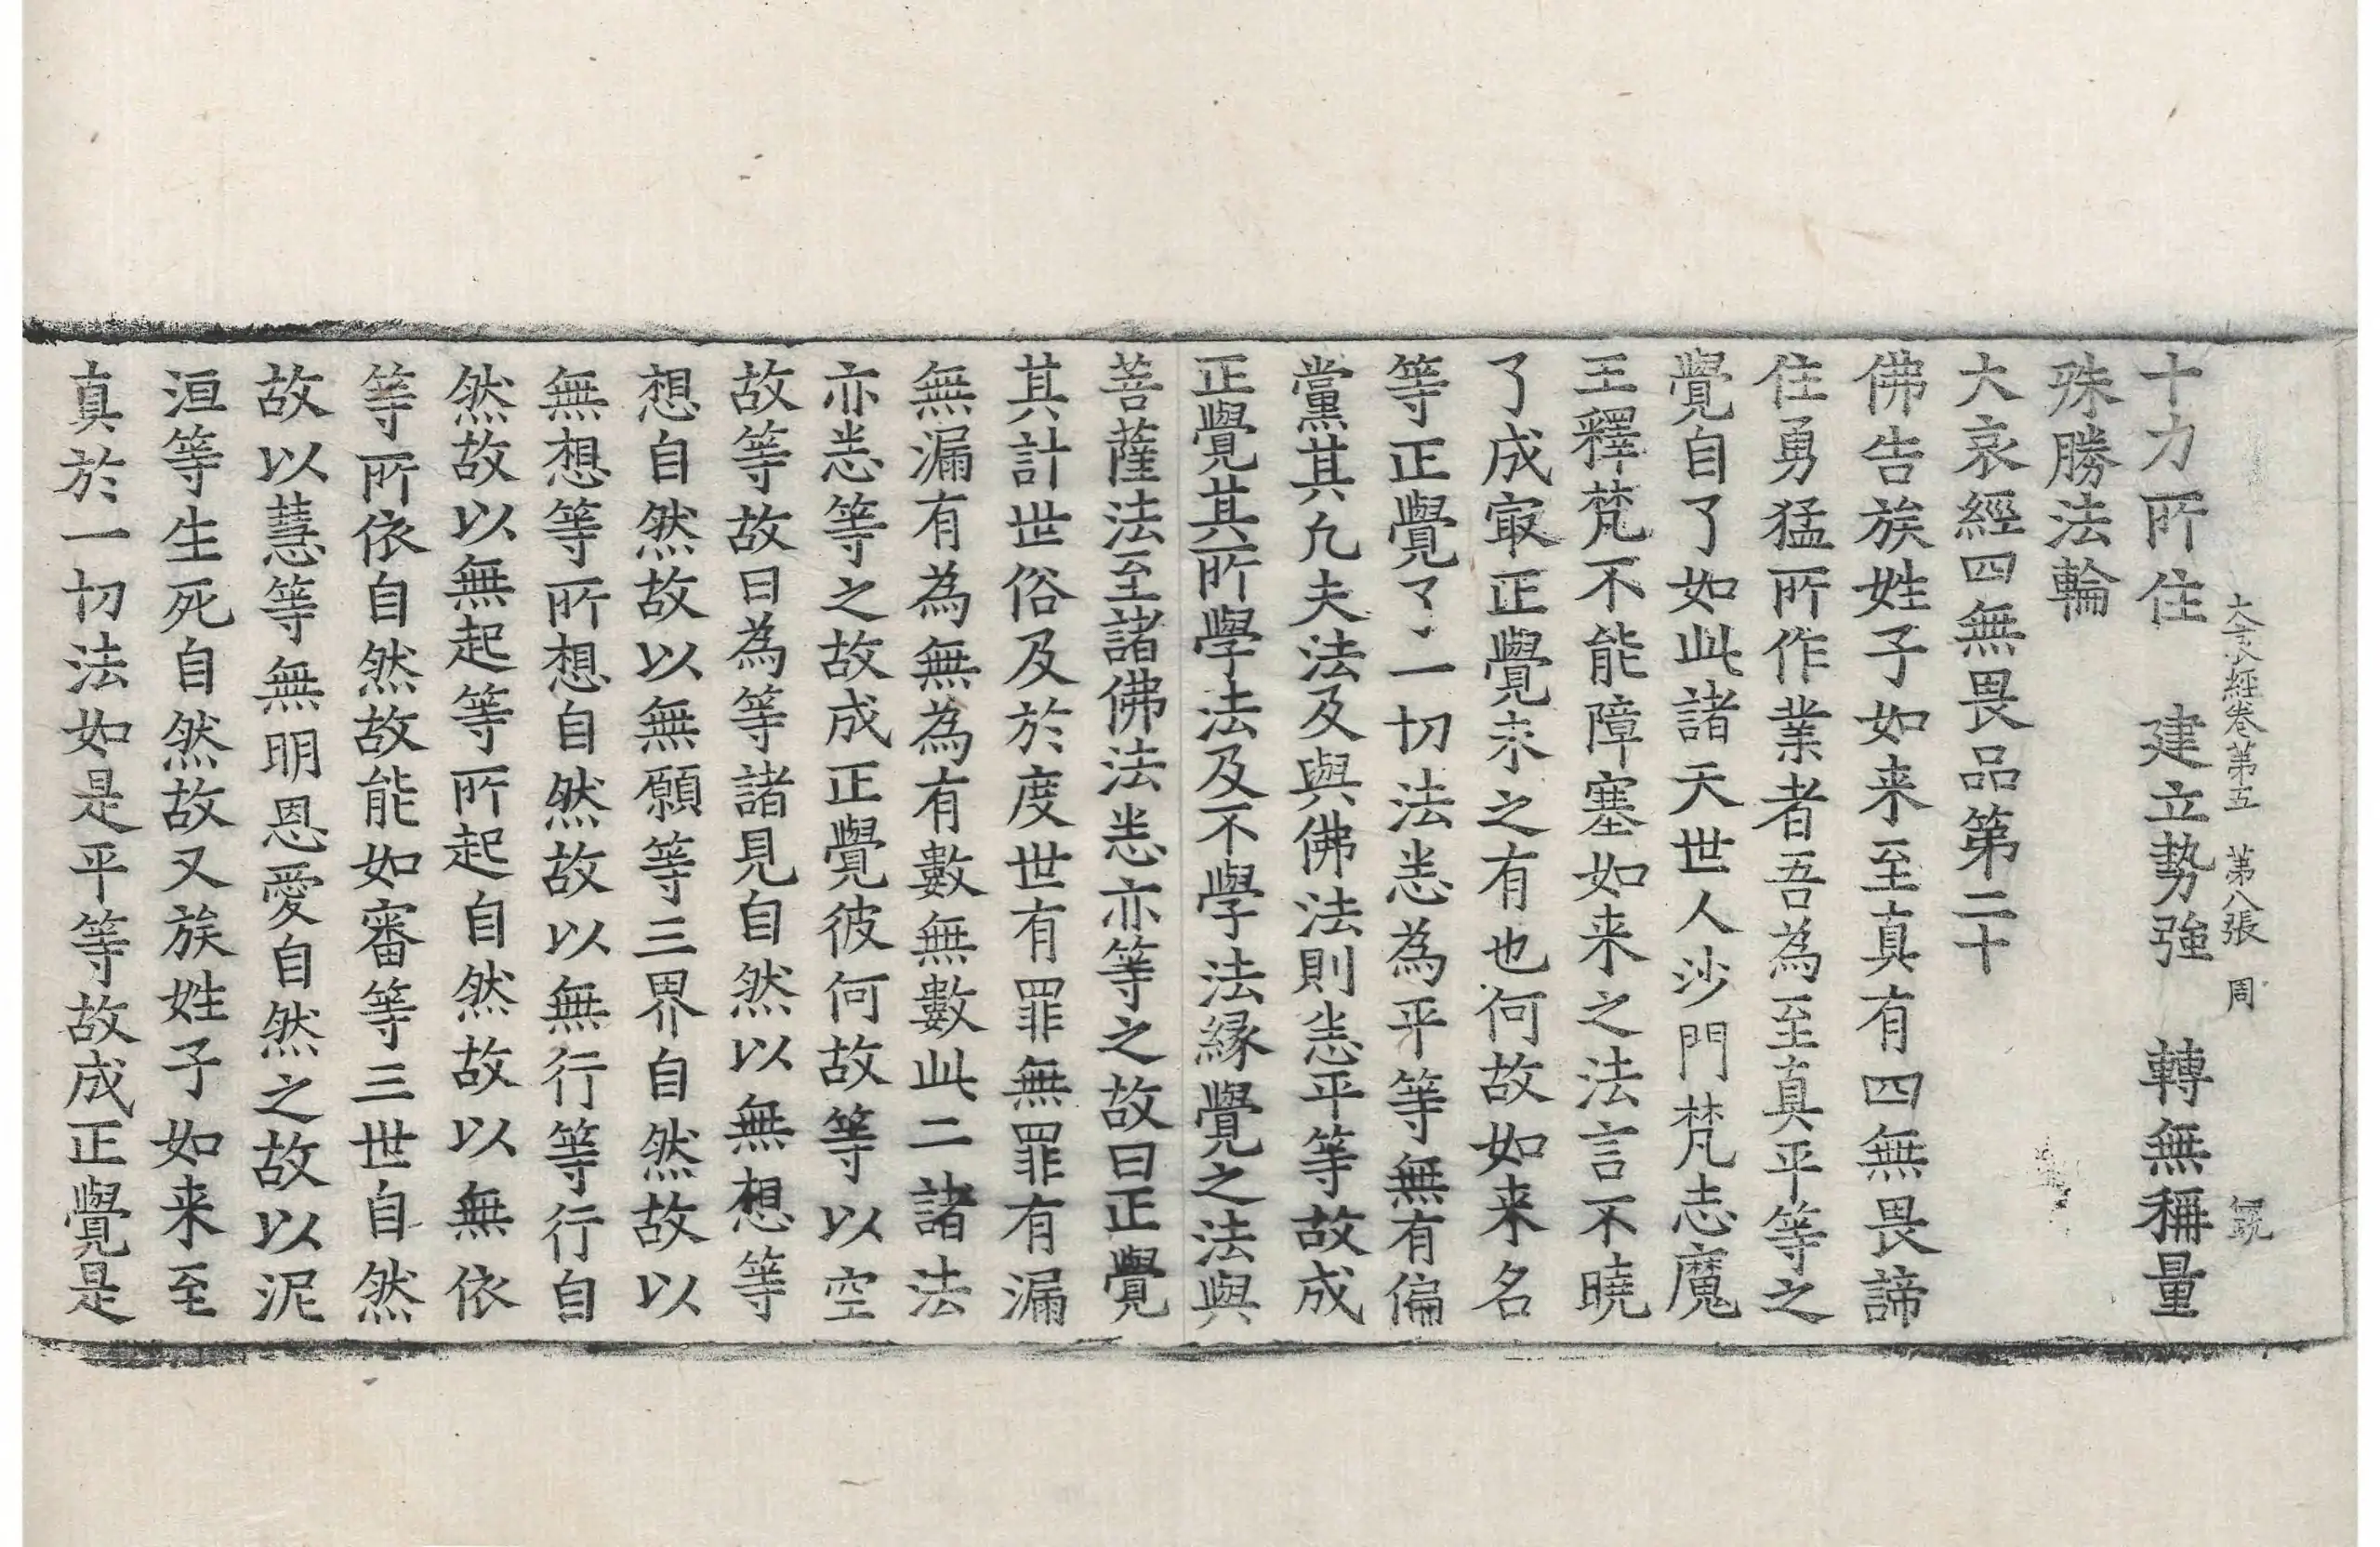 大哀經卷第五　第八張　周
十力所住　建立勢強　轉無稱量
殊勝法輪
大哀經四無畏品第二十
佛告族姓子如来至真有四無畏諦
住勇猛所作業者吾為至真平等之
覺自了如此諸天世人沙門梵志魔
王釋梵不能障塞如来之法言不曉
了成㝡正覺未之有也何故如来名
等正覺了了一切法悉為平等無有偏
黨其凢夫法及與佛法則悉平等故成
正覺其所學法及不學法縁覺之法與
菩薩法至諸佛法法悉亦等之故曰正覺
其計世俗及於度世有罪無罪有漏
無漏有為無為有數無數此二諸法
亦悉等之故成正覺彼何故等以空
故等故曰為等諸見自然以無想等
想自然故以無願等三界自然故以
無想等所想自然故以無行等行自
然故以無起等所起自然故以無依
等所依自然故能如審等三世自然
故以慧等無明恩愛自然之故以泥
洹等生死自然故又族姓子如来至
真於一切法如是平等故成正覺是